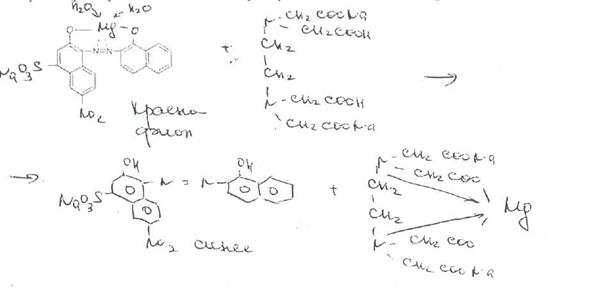 H₂O H₂O
O Mg O
N=N
NaO₃S
NO₂
+
N - CH₂COONa
CH₂COOH
CH₂
CH₂
N - CH₂COOH
CH₂COONa
→
→
OH
NaO₃S
N = N
OH
NO₂ синее
+
N - CH₂COONa
CH₂COO
CH₂
CH₂
Mg
N - CH₂COO
CH₂COONa